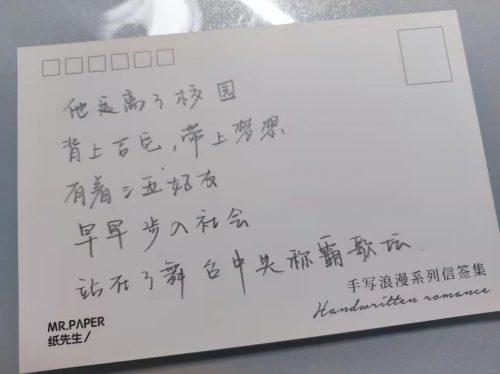 他远离了校园
背上吉它，带上梦想
有着三五好友
早早步入社会
站在了舞台中央称霸歌坛
手写浪漫系列信签集
Handwritten romance
MR.PAPER
纸先生/